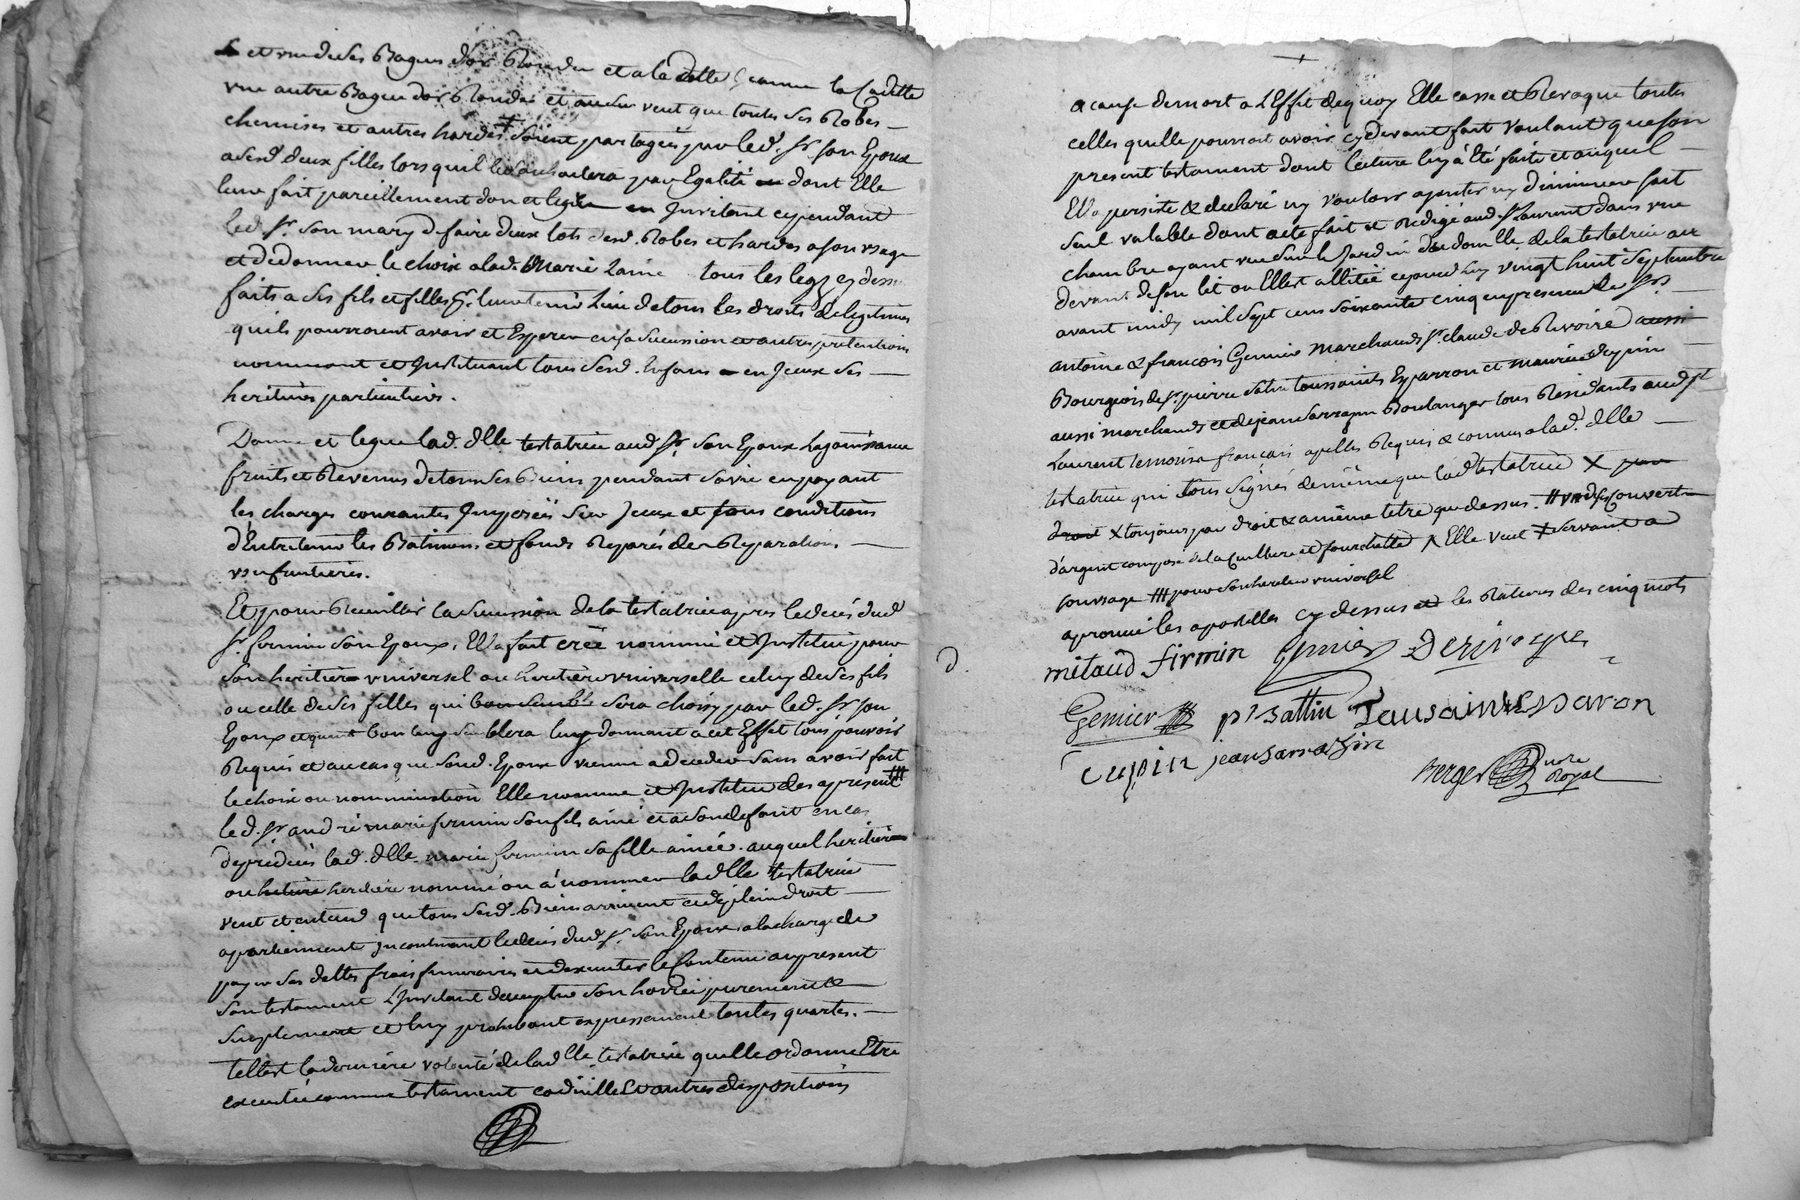 et une de ses Bagues d'or Rondes et a lad. dlle Jeanne la Cadette
une autre Bague d'or Rondes et and. veut que toutes ses Robes
chemises et autres hardes soient partagés par led. Sr. son Epoux
a sesd. deux filles lorsquil le souhaitera par Egalité dont Elle
leur fait pareillement don et legs Invitant cependant
led. Sr. son mary de faire deux lots desd. Robes et hardes a son usage
et de donner le choix a lad. Marie L'ainé tous les legs cy dessus
faits a ses fils et filles pr. leur tenir Lieu de tous les droits de legitimes
qu'ils pourroient avoir et Esperer en sa sucession et autres pretentions
nommant et Instituant tous sesd. Enfans en Iceux ses
heritiers particuliers.
Donne et legue lad. dlle testatrice aud. Sr. son Epoux la jouissance
fruits et Revenus de tous ses Biens pendant sa vie en payant
les charges courantes Imposées sur Iceux et sous conditions
d'Entretenir les Batimens et fonds Reparés des Reparations
usufruitieres.
Et pour Recuillir la sucession de la testatrice apres le deces dud.
Sr. firmin son Epoux, Ell'a fait créé nommé et Institué pour
son heritier universel ou heritiere universelle celuy de ses fils
ou celle de ses filles qui sera choisy par led. Sr. son
Epoux et quant bon luy semblera luy donnant a cet Effet tous pouvoirs
Requis et au cas que sond. Epoux vienne a deceder sans avoir fait
le choix ou nommination Elle nomme et Institue des apresent #
led. Sr andré marie firmin son fils ainé et a son defaut en cas
de predeces lad. dlle marie firmin sa fille ainée. auquel heritier
ou heritiere nommé ou a nommer lad dlle testatrice
veut et entend que tous sesd. Biens arrivent et de plein droit
apartiennent Incontinant le deces dud. Sr. son Epoux a la charge de
payer ses dettes frais funeraires et d'executer le Contenu au present
son testament L'Invitant d'accepter son hoirie purement &
simplement et luy prohibant expressement toutes quartes.
telle est la derniere volonté de lad dlle testatrice quelle ordonne Etre
executée comme testament codicille & autres dispositions
a cause de mort a L'Effet de quoy Elle casse et Revoque toutes
celles quelle pourroit avoir cy devant fait voulant que son
present testament dont lecture luy a été faite et auquel
Ell'a persisté & declaré ny vouloir ajouter ny diminuer soit
seul valable dont acte fait et Redigé aud. St Laurent dans une
chambre ayant vue sur le Jardin du domille de la testatrice au
devant de son lit ou Ell'est allitée cejourd'huy vingt huit Septembre
avant midy mil sept cens soixante cinq en presence de Srs
antoine & françois Genier Marchands Sr. claude de Rivoire aussi
Bourgeois de Sr. pierre Sattin toussaints Esparron et maurice cupin
aussi marchands et de jean sarrazin Boulanger tous Residants aud. St
Laurent temoins francais apellés Requis & connus a lad. dlle
testatrice qui tous signés de même que lad testatrice X par
droit X toujours par droit & a même tître que dessus. # un de ses couverts
d'argent composé de la cuilliere et fourchette X Elle veut X servant a
son usage ### pour son heritier universel
aprouvé les apostilles cy dessus et les Ratures des cinq mots
mitaud firmin Genier Derivoyre
Genier pr Sattin Tausaint Esparon
cupin jean sarrazin
Berger nore
Royal